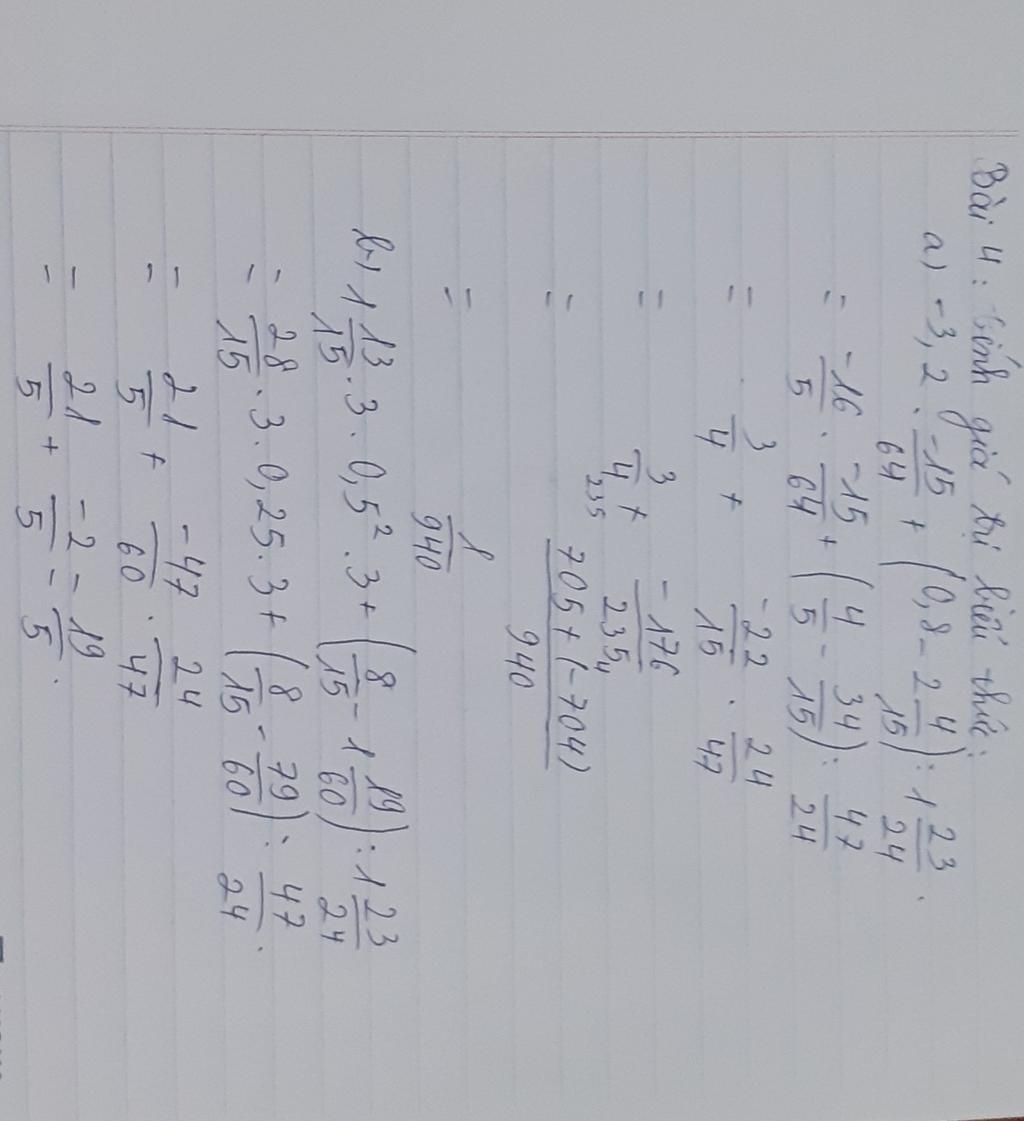 Bài 4: Tính giá trị biểu thức:
a) -3,2 . -15/64 + (0,8 - 2 4/15) : 1 23/24 .
= -16/5 . -15/64 + (4/5 - 34/15) : 47/24
= 3/4 + -22/15 . 24/47
= 3/4 + -176/235
235 4
= 705 + (-704)/940
= 1/940
b) 1 13/15 . 3 . 0,5² . 3 + (8/15 - 1 19/60) : 1 23/24
= 28/15 . 3 . 0,25 . 3 + (8/15 - 79/60) : 47/24 .
= 21/5 + -47/60 . 24/47
= 21/5 + -2/5 = 19/5 .